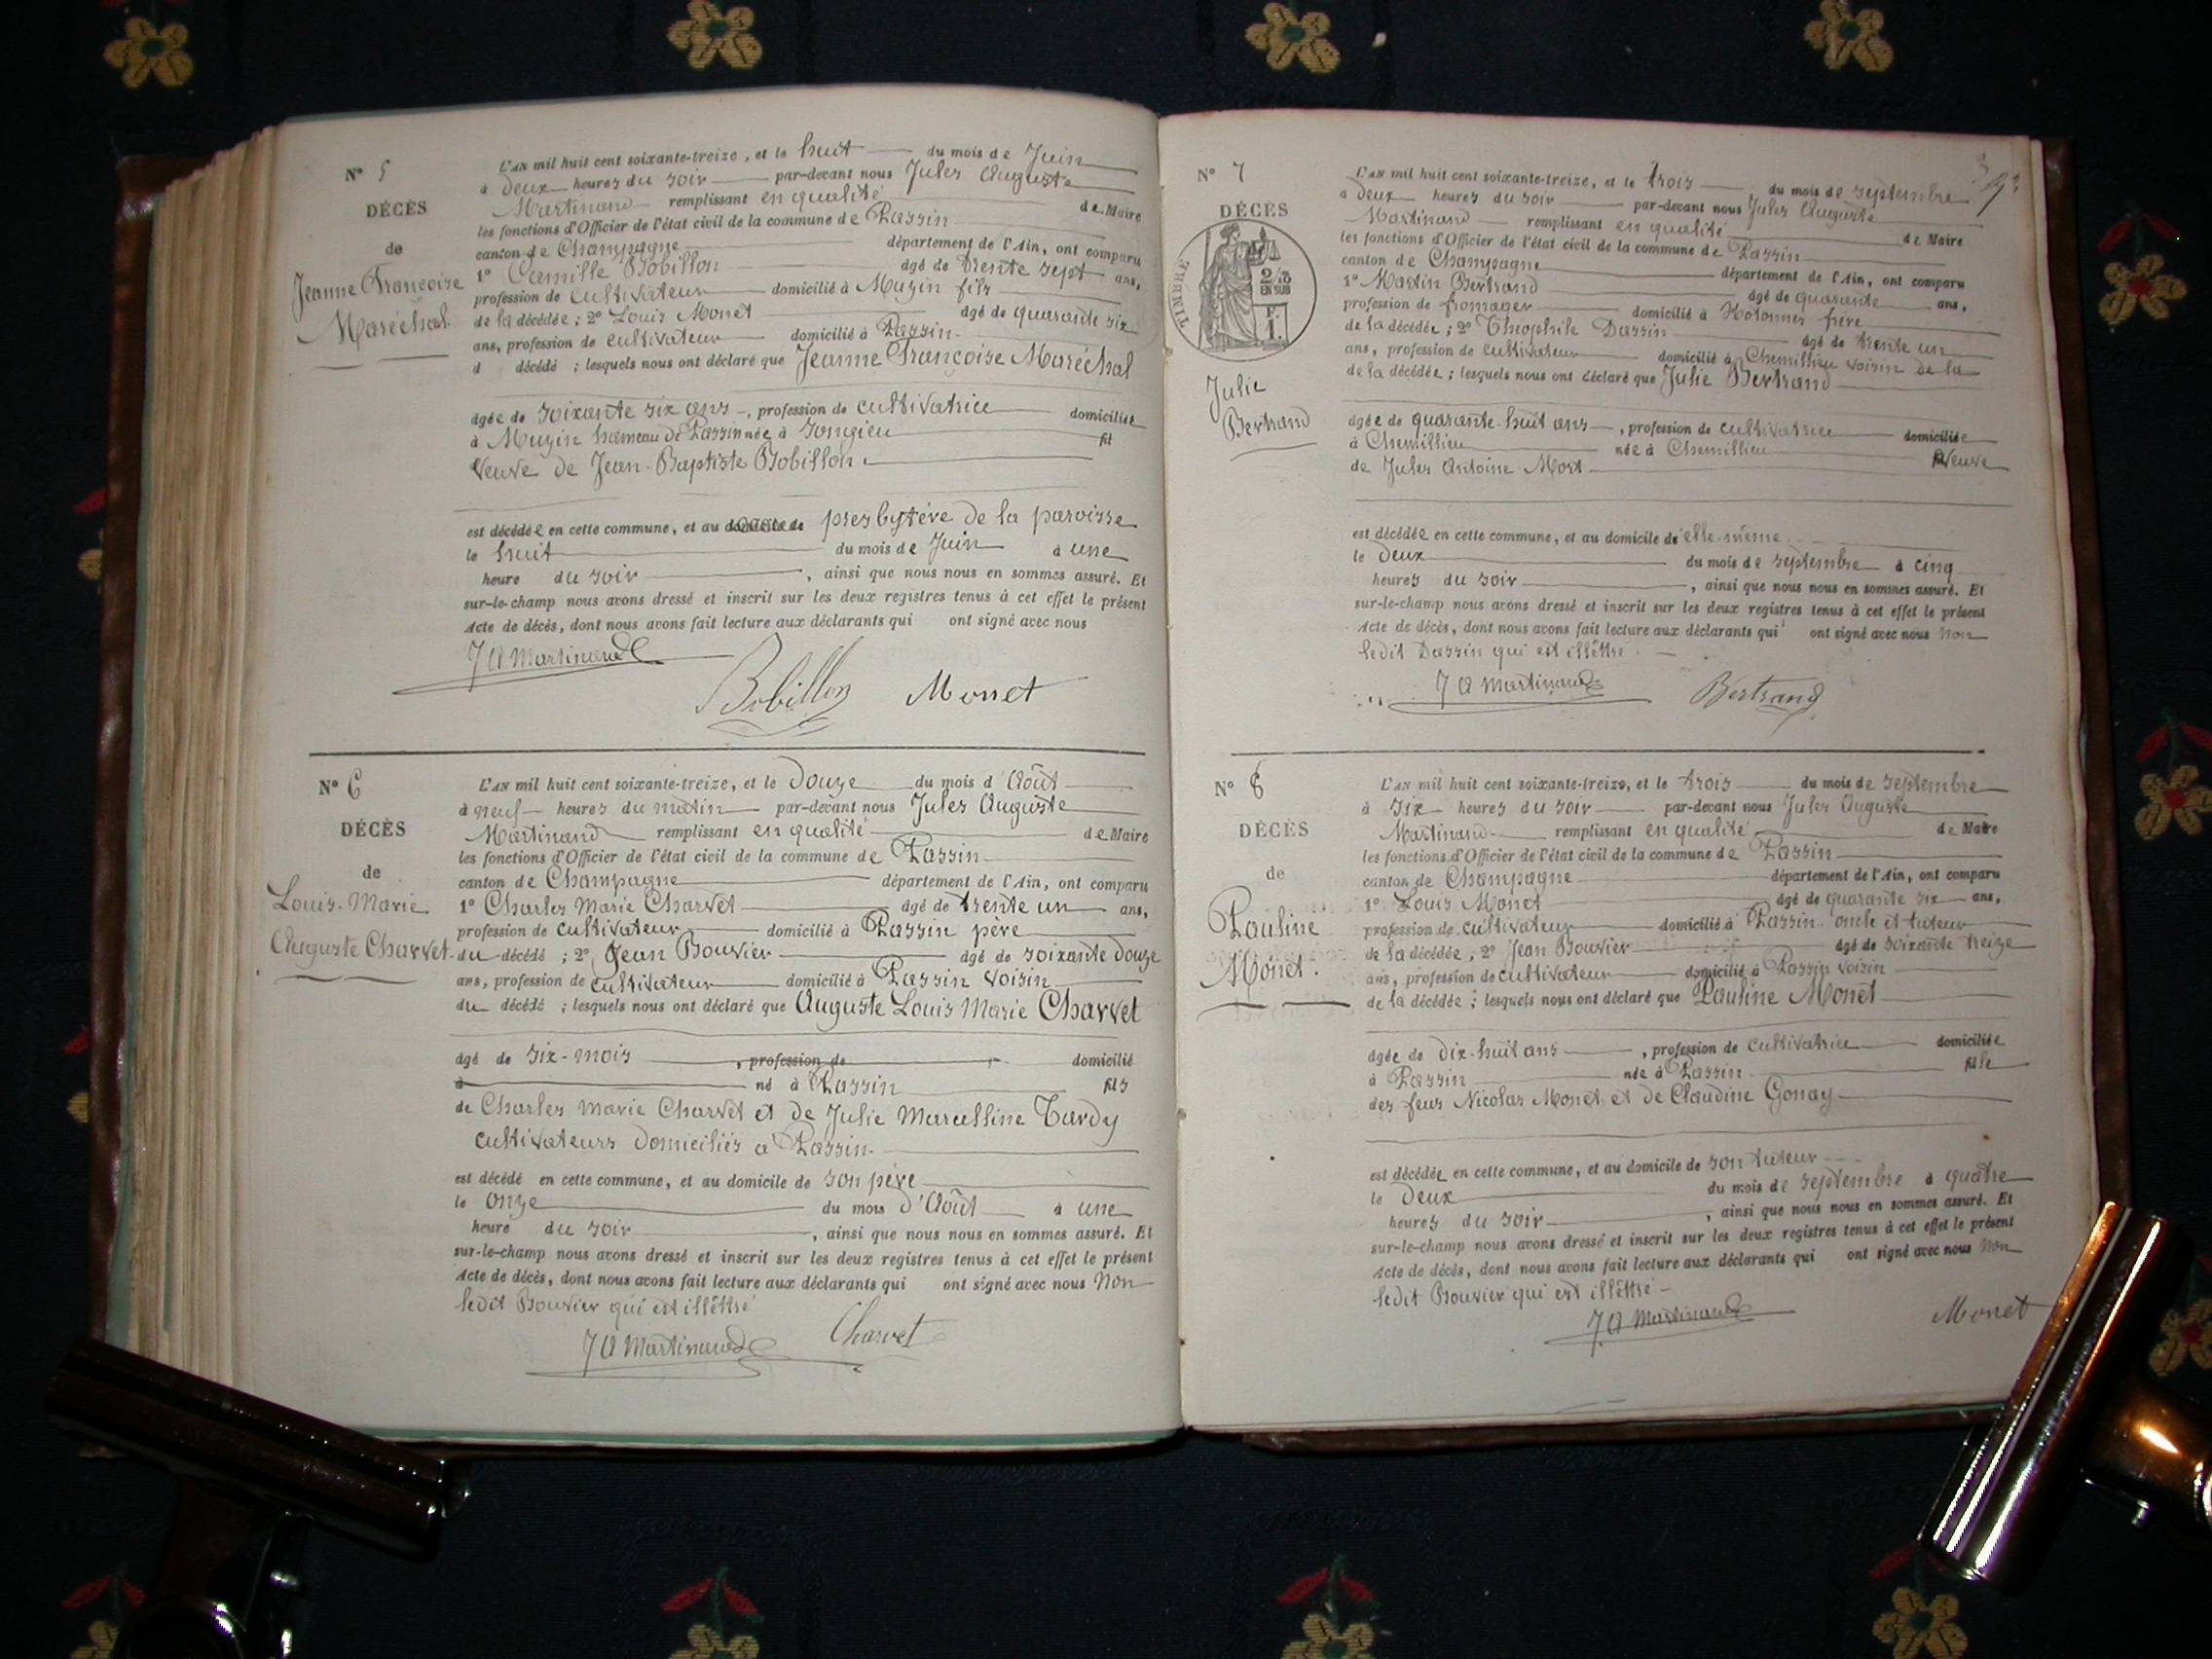 N° 5
DÉCÈS
de
Jeanne Françoise
Maréchal
L'AN mil huit cent soixante-treize, et le huit du mois de Juin
à deux heures du soir par-devant nous Jules Auguste
Martinand remplissant en qualité de Maire
les fonctions d'Officier de l'état civil de la commune de Passin
canton de Champagne département de l'Ain, ont comparu
1° Camille Bobillon âgé de trente sept ans,
profession de cultivateur domicilié à Muzin fils
de la décédée ; 2° Louis Monet âgé de quarante six
ans, profession de cultivateur domicilié à Passin
d décédé ; lesquels nous ont déclaré que Jeanne Françoise Maréchal
âgée de soixante six ans, profession de cultivatrice domiciliée
à Muzin hameau de Passin née à Songieu fil
veuve de Jean-Baptiste Bobillon
est décédée en cette commune, et au presbytère de la paroisse
le huit du mois de Juin à une
heure du soir, ainsi que nous nous en sommes assuré. Et
sur-le-champ nous avons dressé et inscrit sur les deux registres tenus à cet effet le présent
Acte de décès, dont nous avons fait lecture aux déclarants qui ont signé avec nous
J A Martinand
Bobillon Monet
N° 6
DÉCÈS
de
Louis-Marie
Auguste Charvet
L'AN mil huit cent soixante-treize, et le douze du mois d'Août
à neuf heures du matin par-devant nous Jules Auguste
Martinand remplissant en qualité de Maire
les fonctions d'Officier de l'état civil de la commune de Passin
canton de Champagne département de l'Ain, ont comparu
1° Charles Marie Charvet âgé de trente un ans,
profession de cultivateur domicilié à Passin père
du décédé ; 2° Jean Bouvier âgé de soixante douze
ans, profession de cultivateur domicilié à Passin voisin
du décédé ; lesquels nous ont déclaré que Auguste Louis Marie Charvet
âgé de six-mois, profession de domicilié
à né à Passin fils
de Charles Marie Charvet et de Julie Marcelline Tardy
cultivateurs domiciliés a Passin
est décédé en cette commune, et au domicile de son père
le onze du mois d'Août à une
heure du soir, ainsi que nous nous en sommes assuré. Et
sur-le-champ nous avons dressé et inscrit sur les deux registres tenus à cet effet le présent
Acte de décès, dont nous avons fait lecture aux déclarants qui ont signé avec nous non
ledit Bouvier qui est illêttré
J A Martinand Charvet
N° 7
DÉCÈS
TIMBRE
2/10
EN SUS
F.
1.
Julie
Bertrand
L'AN mil huit cent soixante-treize, et le trois du mois de septembre
à deux heures du soir par-devant nous Jules Auguste
Martinand remplissant en qualité de Maire
les fonctions d'Officier de l'état civil de la commune de Passin
canton de Champagne département de l'Ain, ont comparu
1° Martin Bertrand âgé de quarante ans,
profession de fromager domicilié à Hotonnes frère
de la décédée ; 2° Théophile Dassin âgé de trente un
ans, profession de cultivateur domicilié à Chemillieu voisin de la
de la décédée ; lesquels nous ont déclaré que Julie Bertrand
âgée de quarante-huit ans, profession de cultivatrice domiciliée
à Chemillieu née à Chemillieu veuve
de Jules Antoine Mort
est décédée en cette commune, et au domicile d'elle-même
le deux du mois de septembre à cinq
heures du soir, ainsi que nous nous en sommes assuré. Et
sur-le-champ nous avons dressé et inscrit sur les deux registres tenus à cet effet le présent
Acte de décès, dont nous avons fait lecture aux déclarants qui ont signé avec nous non
ledit Dassin qui est illêttré
J A Martinand Bertrand
N° 8
DÉCÈS
de
Pauline
Monet.
L'AN mil huit cent soixante-treize, et le trois du mois de septembre
à six heures du soir par-devant nous Jules Auguste
Martinand remplissant en qualité de Maire
les fonctions d'Officier de l'état civil de la commune de Passin
canton de Champagne département de l'Ain, ont comparu
1° Louis Monet âgé de quarante six ans,
profession de cultivateur domicilié à Passin oncle et tuteur
de la décédée ; 2° Jean Bouvier âgé de soixante treize
ans, profession de cultivateur domicilié à Passin voisin
de la décédée ; lesquels nous ont déclaré que Pauline Monet
âgée de dix-huit ans, profession de cultivatrice domiciliée
à Passin née à Passin fille
des feus Nicolas Monet et de Claudine Gonay
est décédée en cette commune, et au domicile de son tuteur
le deux du mois de septembre à quatre
heures du soir, ainsi que nous nous en sommes assuré. Et
sur-le-champ nous avons dressé et inscrit sur les deux registres tenus à cet effet le présent
Acte de décès, dont nous avons fait lecture aux déclarants qui ont signé avec nous non
ledit Bouvier qui est illêttré
J A Martinand Monet